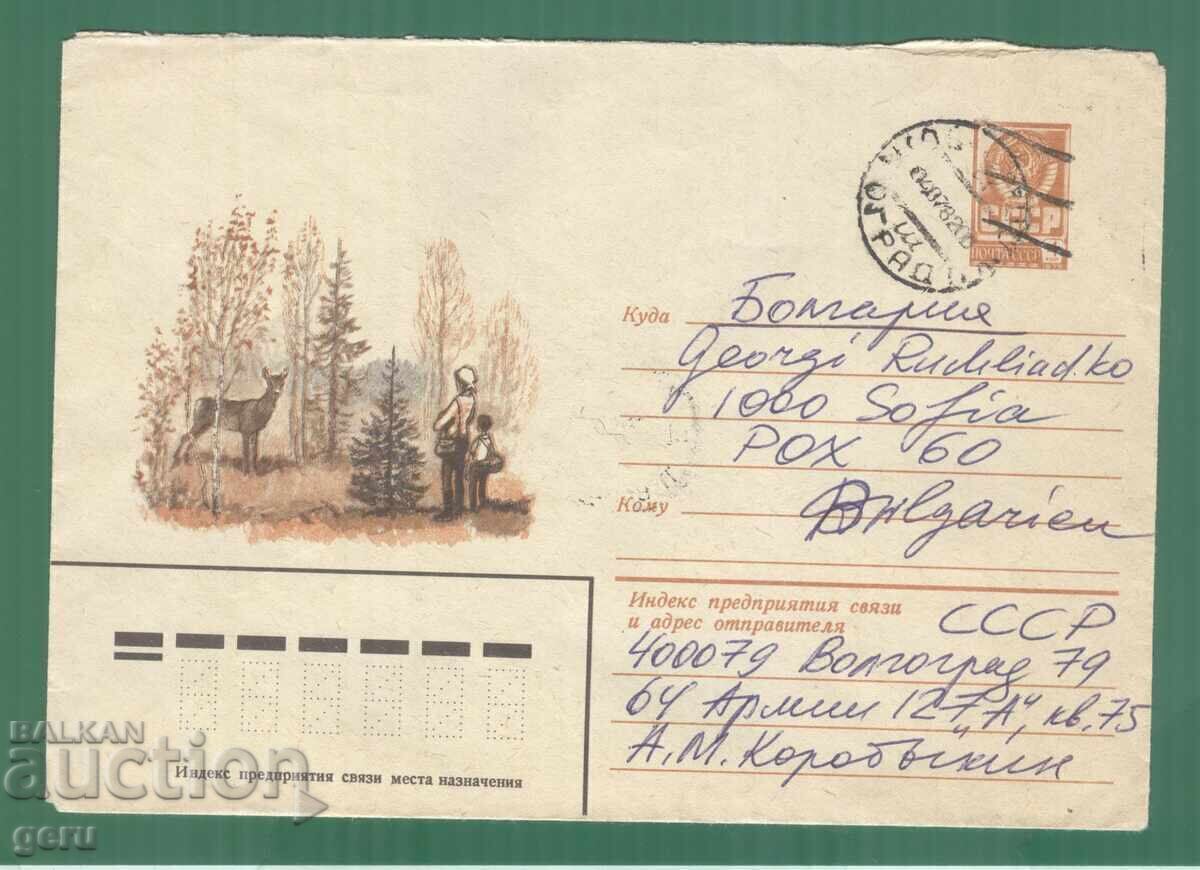 ПОЧТА СССР
Куда Болгария
Georgi
1000 Sofia
POX 60
Кому
Bulgarien
Индекс предприятия связи
и адрес отправителя СССР
400079 Волгоград 79
64 Армии 127 „А“, кв. 75
А.М. Коробыкин
Индекс предприятия связи места назначения
BALKAN
auction
geru